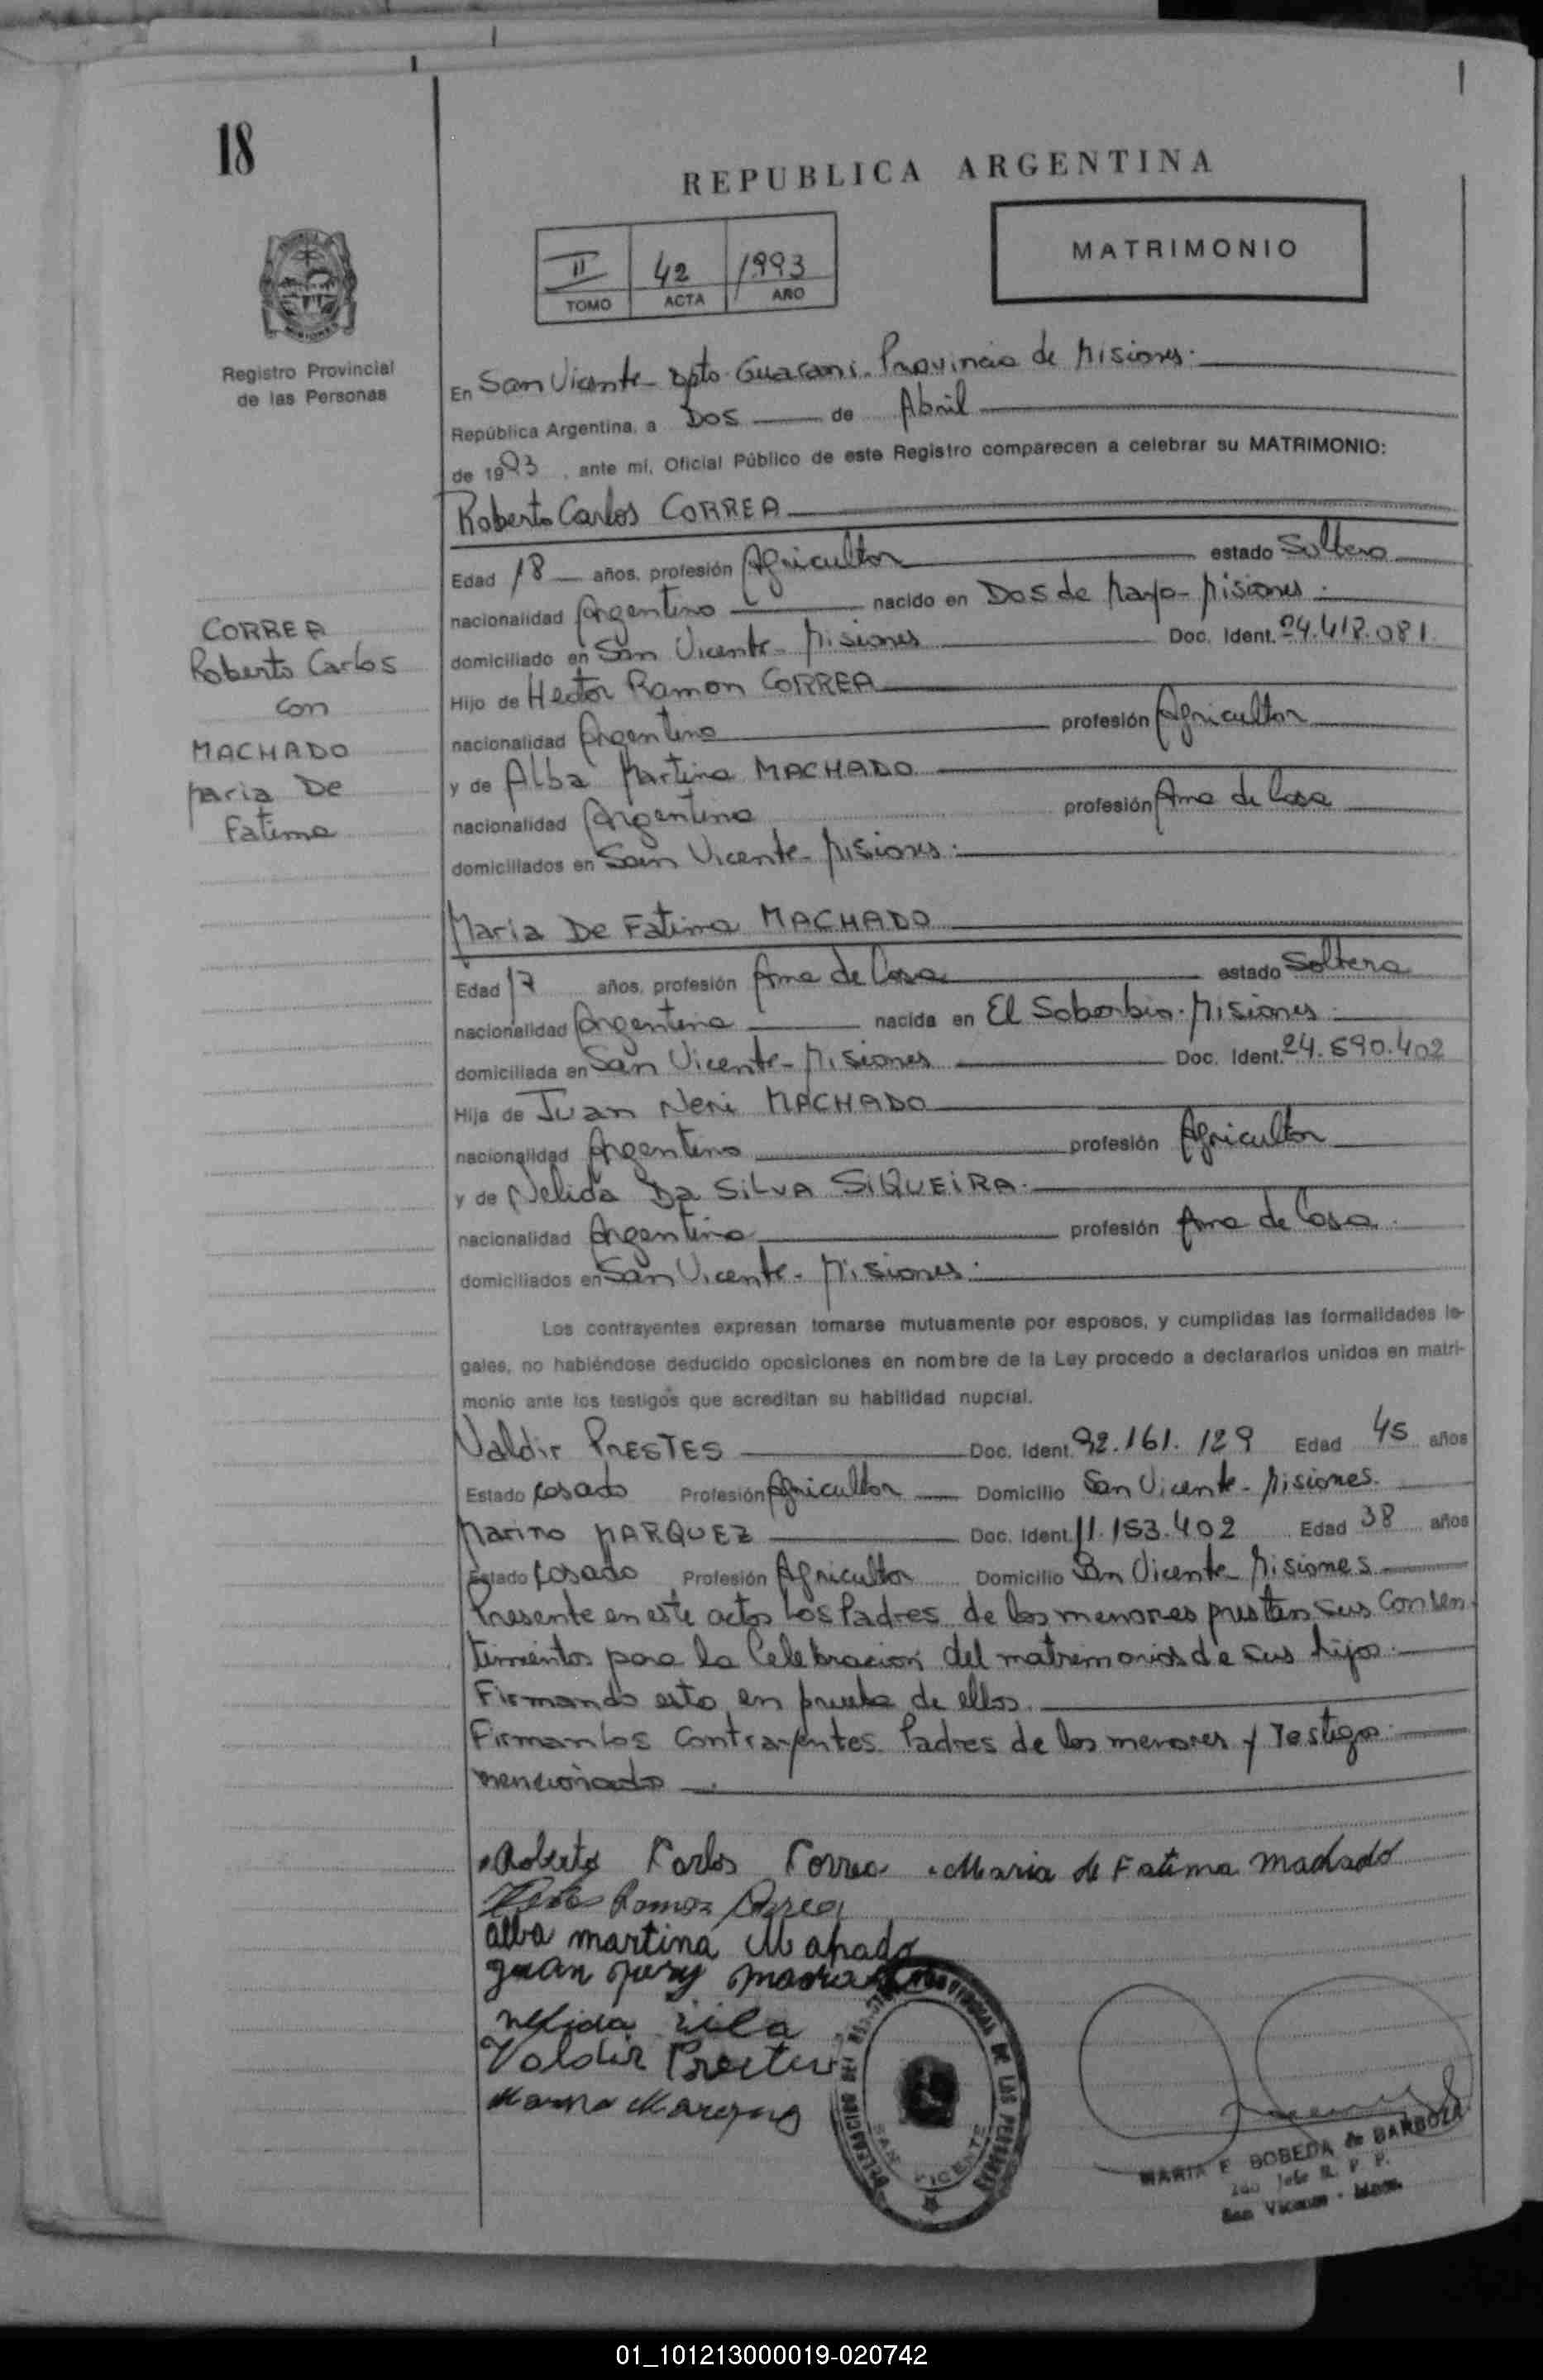 18
REPUBLICA ARGENTINA
II 42 1993
TOMO ACTA AÑO
MATRIMONIO
Registro Provincial
de las Personas
En San Vicente - Dpto Guarani - Provincia de Misiones.
República Argentina, a Dos de Abril
de 1993, ante mí, Oficial Público de este Registro comparecen a celebrar su MATRIMONIO:
Roberto Carlos CORREA
Edad 18 años, profesión Agricultor estado Soltero
nacionalidad Argentino nacido en Dos de Mayo - Misiones.
domiciliado en San Vicente - Misiones Doc. Ident. 24.418.081
Hijo de Hector Ramon CORREA
nacionalidad Argentino profesión Agricultor
y de Alba Martina MACHADO
nacionalidad Argentina profesión Ama de Casa
domiciliados en San Vicente - Misiones.
CORREA
Roberto Carlos
con
MACHADO
Maria De
Fatima
Maria De Fatima MACHADO
Edad 17 años, profesión Ama de Casa estado Soltera
nacionalidad Argentina nacida en El Soberbio - Misiones.
domiciliada en San Vicente - Misiones Doc. Ident. 24.690.402
Hija de Juan Neri MACHADO
nacionalidad Argentino profesión Agricultor
y de Nelida Da SILVA SIQUEIRA.
nacionalidad Argentina profesión Ama de Casa.
domiciliados en San Vicente - Misiones.
Los contrayentes expresan tomarse mutuamente por esposos, y cumplidas las formalidades le-
gales, no habiéndose deducido oposiciones en nombre de la Ley procedo a declararlos unidos en matri-
monio ante los testigos que acreditan su habilidad nupcial.
Valdir PRESTES Doc. Ident. 92.161.129 Edad 45 años
Estado casado Profesión Agricultor Domicilio San Vicente - Misiones.
Marino MARQUEZ Doc. Ident. 11.153.402 Edad 38 años
Estado casado Profesión Agricultor Domicilio San Vicente - Misiones
Presente en este actos los Padres de los menores prestan sus Consen
timientos para la Celebracion del matrimonios de sus hijos.
Firmando esto en prueba de ellos.
Firman los Contrayentes Padres de los menores y Testigo
mencionado.
Roberto Karlos Correa Maria de Fatima Machado
Ramon Correa
alba martina Mahado
Juan
nelida
Valdir Prestes
DELEGACION DEL REGISTRO PROVINCIAL DE LAS PERSONAS
SAN VICENTE
MARIA E BOBEDA de BARBOZA
2do Jefe R. P. P.
San Vicente - Mnes.
01_101213000019-020742